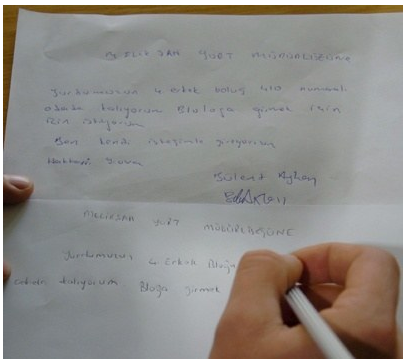 MELİKŞAH YURT MÜDÜRLÜĞÜNE
Yurdumuzun 4 Erkek bloğ 410 numaralı
odada kalıyorum Bloğa girmek için
izin istiyorum
Ben kendi isteğimle giriyorum
Bülent Ayhan
MELİKŞAH YURT MÜDÜRLÜĞÜNE
Yurdumuzun 4 Erkek Bloğu
kalıyorum. Bloğa girmek